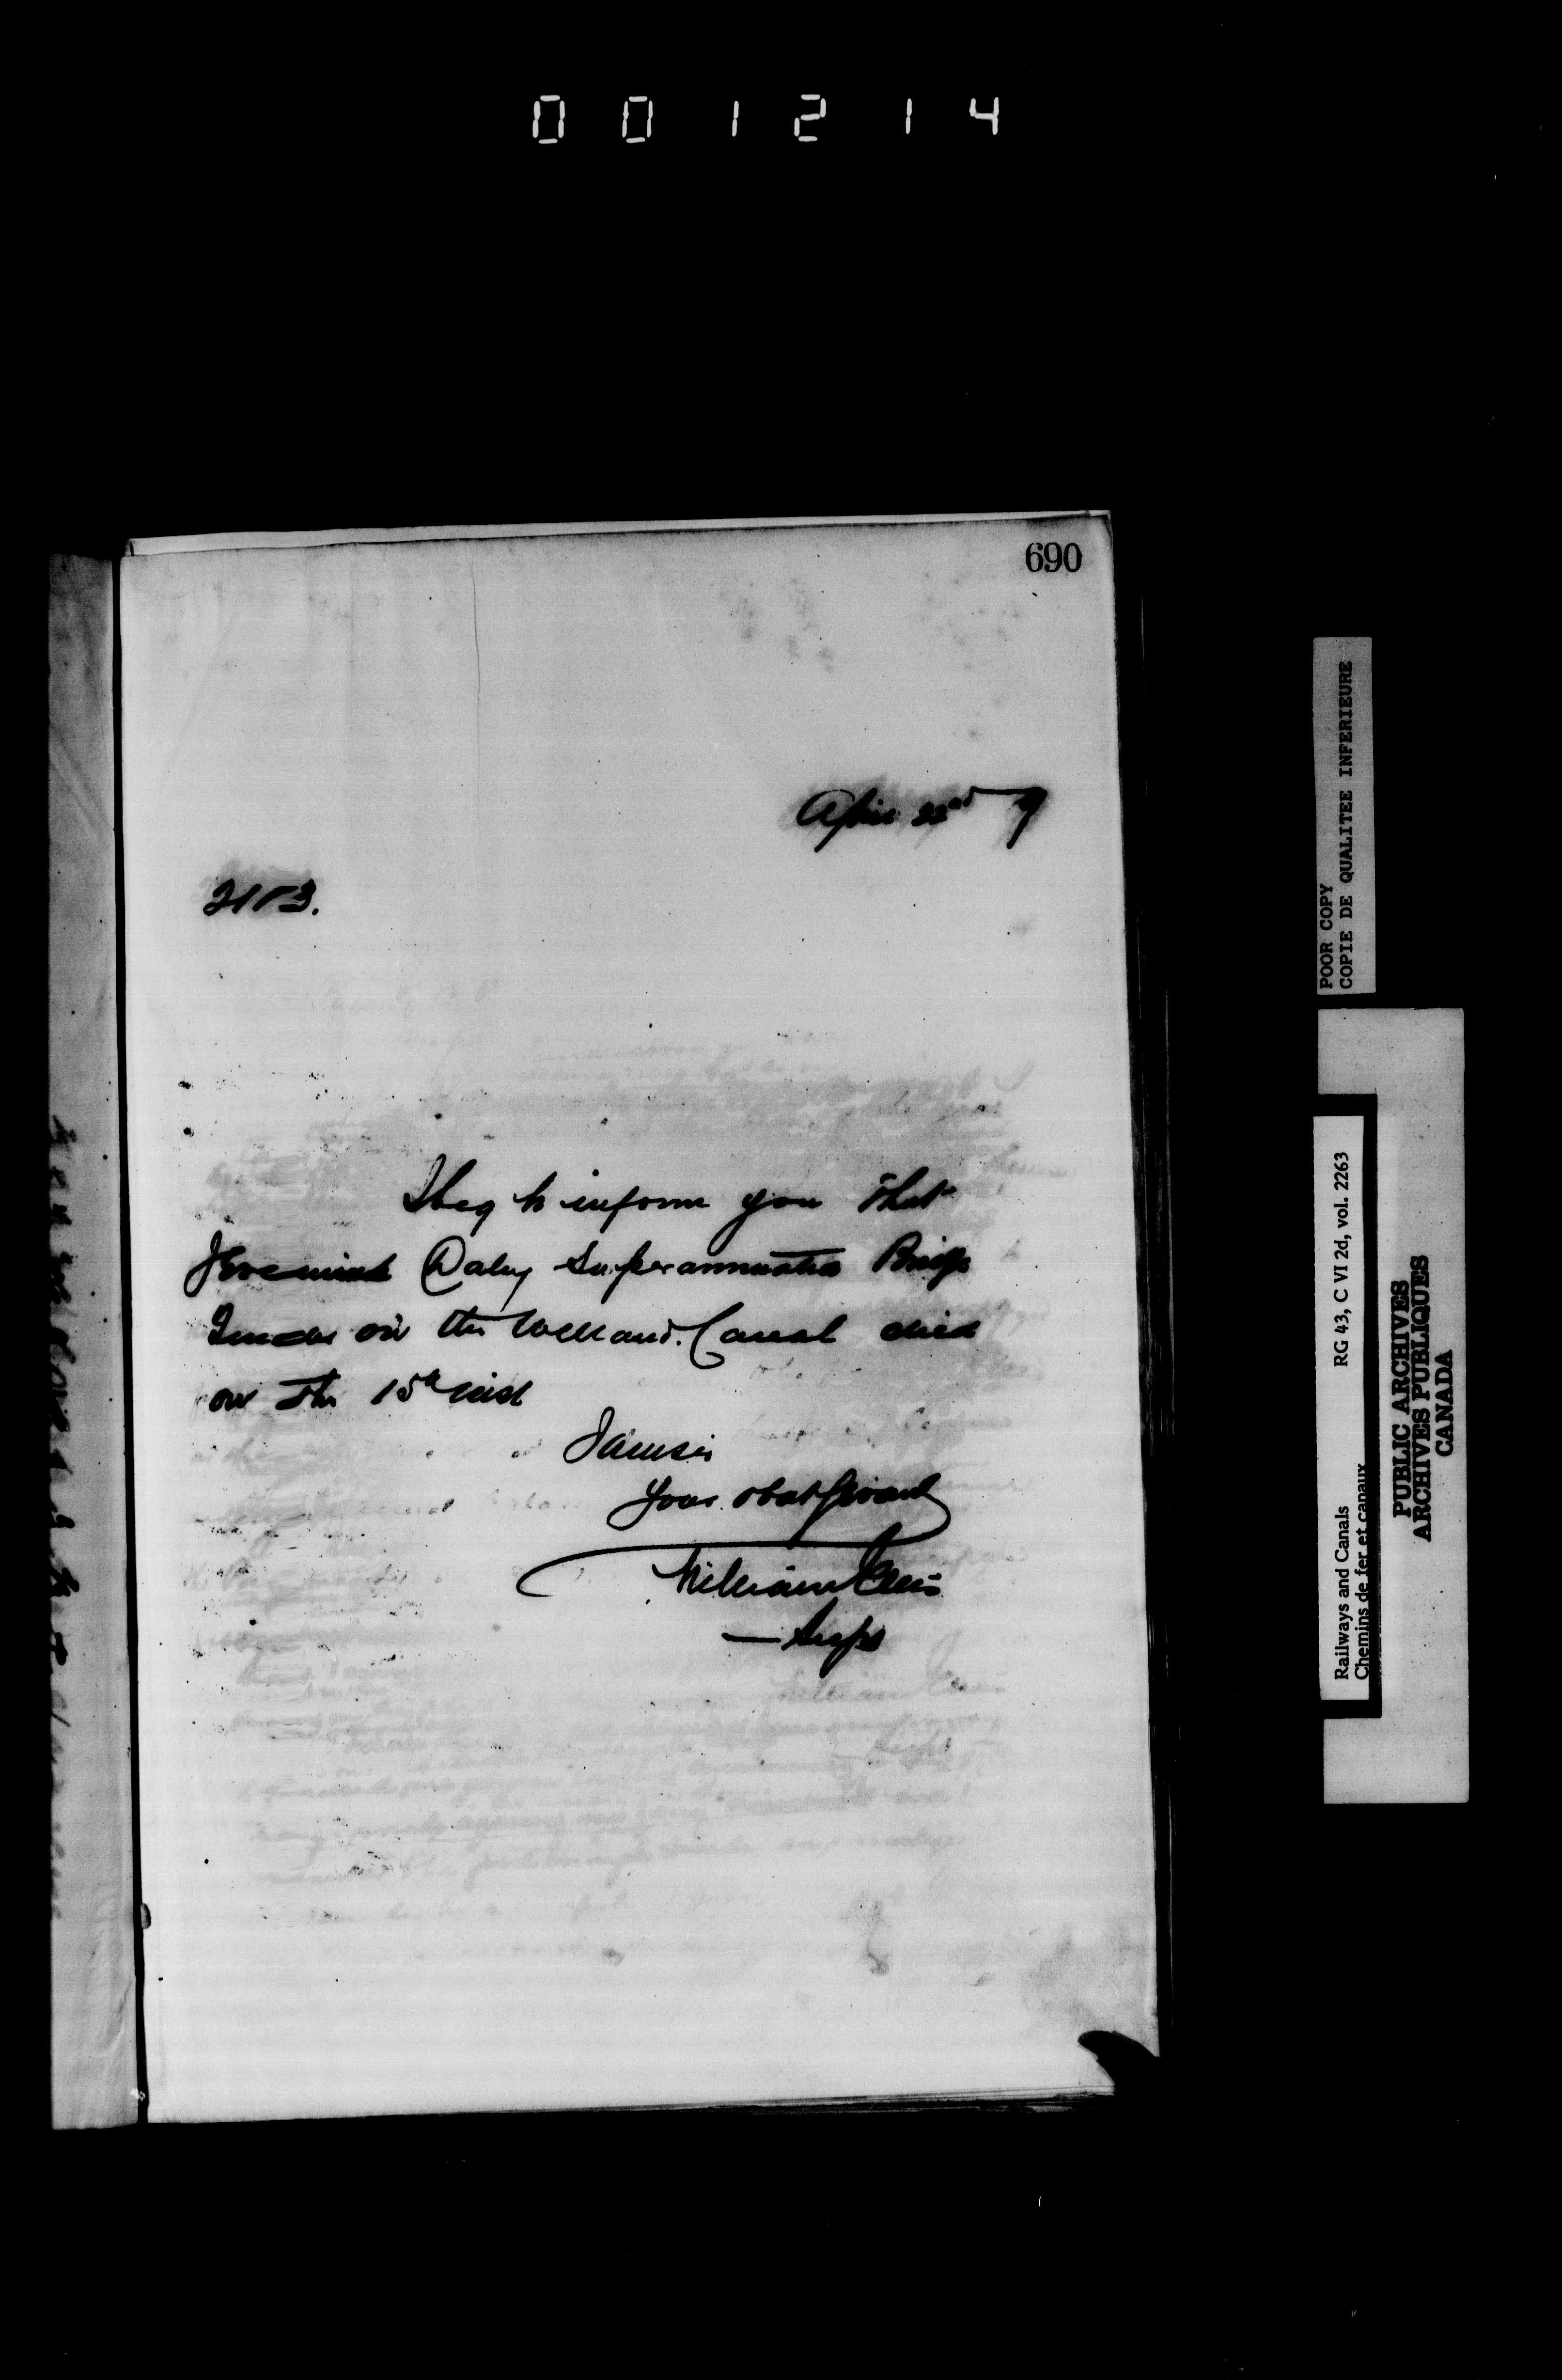 001214
690
April 22nd 9
2183.
I beg to inform you that
Jeremiah Daly Superannuated Bridge
Tender on the Welland Canal died
on the 15th inst
I am sir
Your obdt Servant
William Ellis
— Supt
POOR COPY
COPIE DE QUALITEE INFERIEURE
Railways and Canals RG 43, C VI 2d, vol. 2263
Chemins de fer et canaux
PUBLIC ARCHIVES
ARCHIVES PUBLIQUES
CANADA